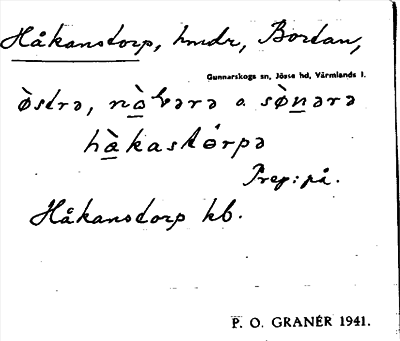 Håkanstorp, hmdr, Bortan,
Gunnarskogs sn, Jösse hd, Värmlands l.
ò̀strə, nò̀bərə o sø̀nərə
hàkastórpə
Prep: på.
Håkanstorp kb.
P. O. GRANÉR 1941.